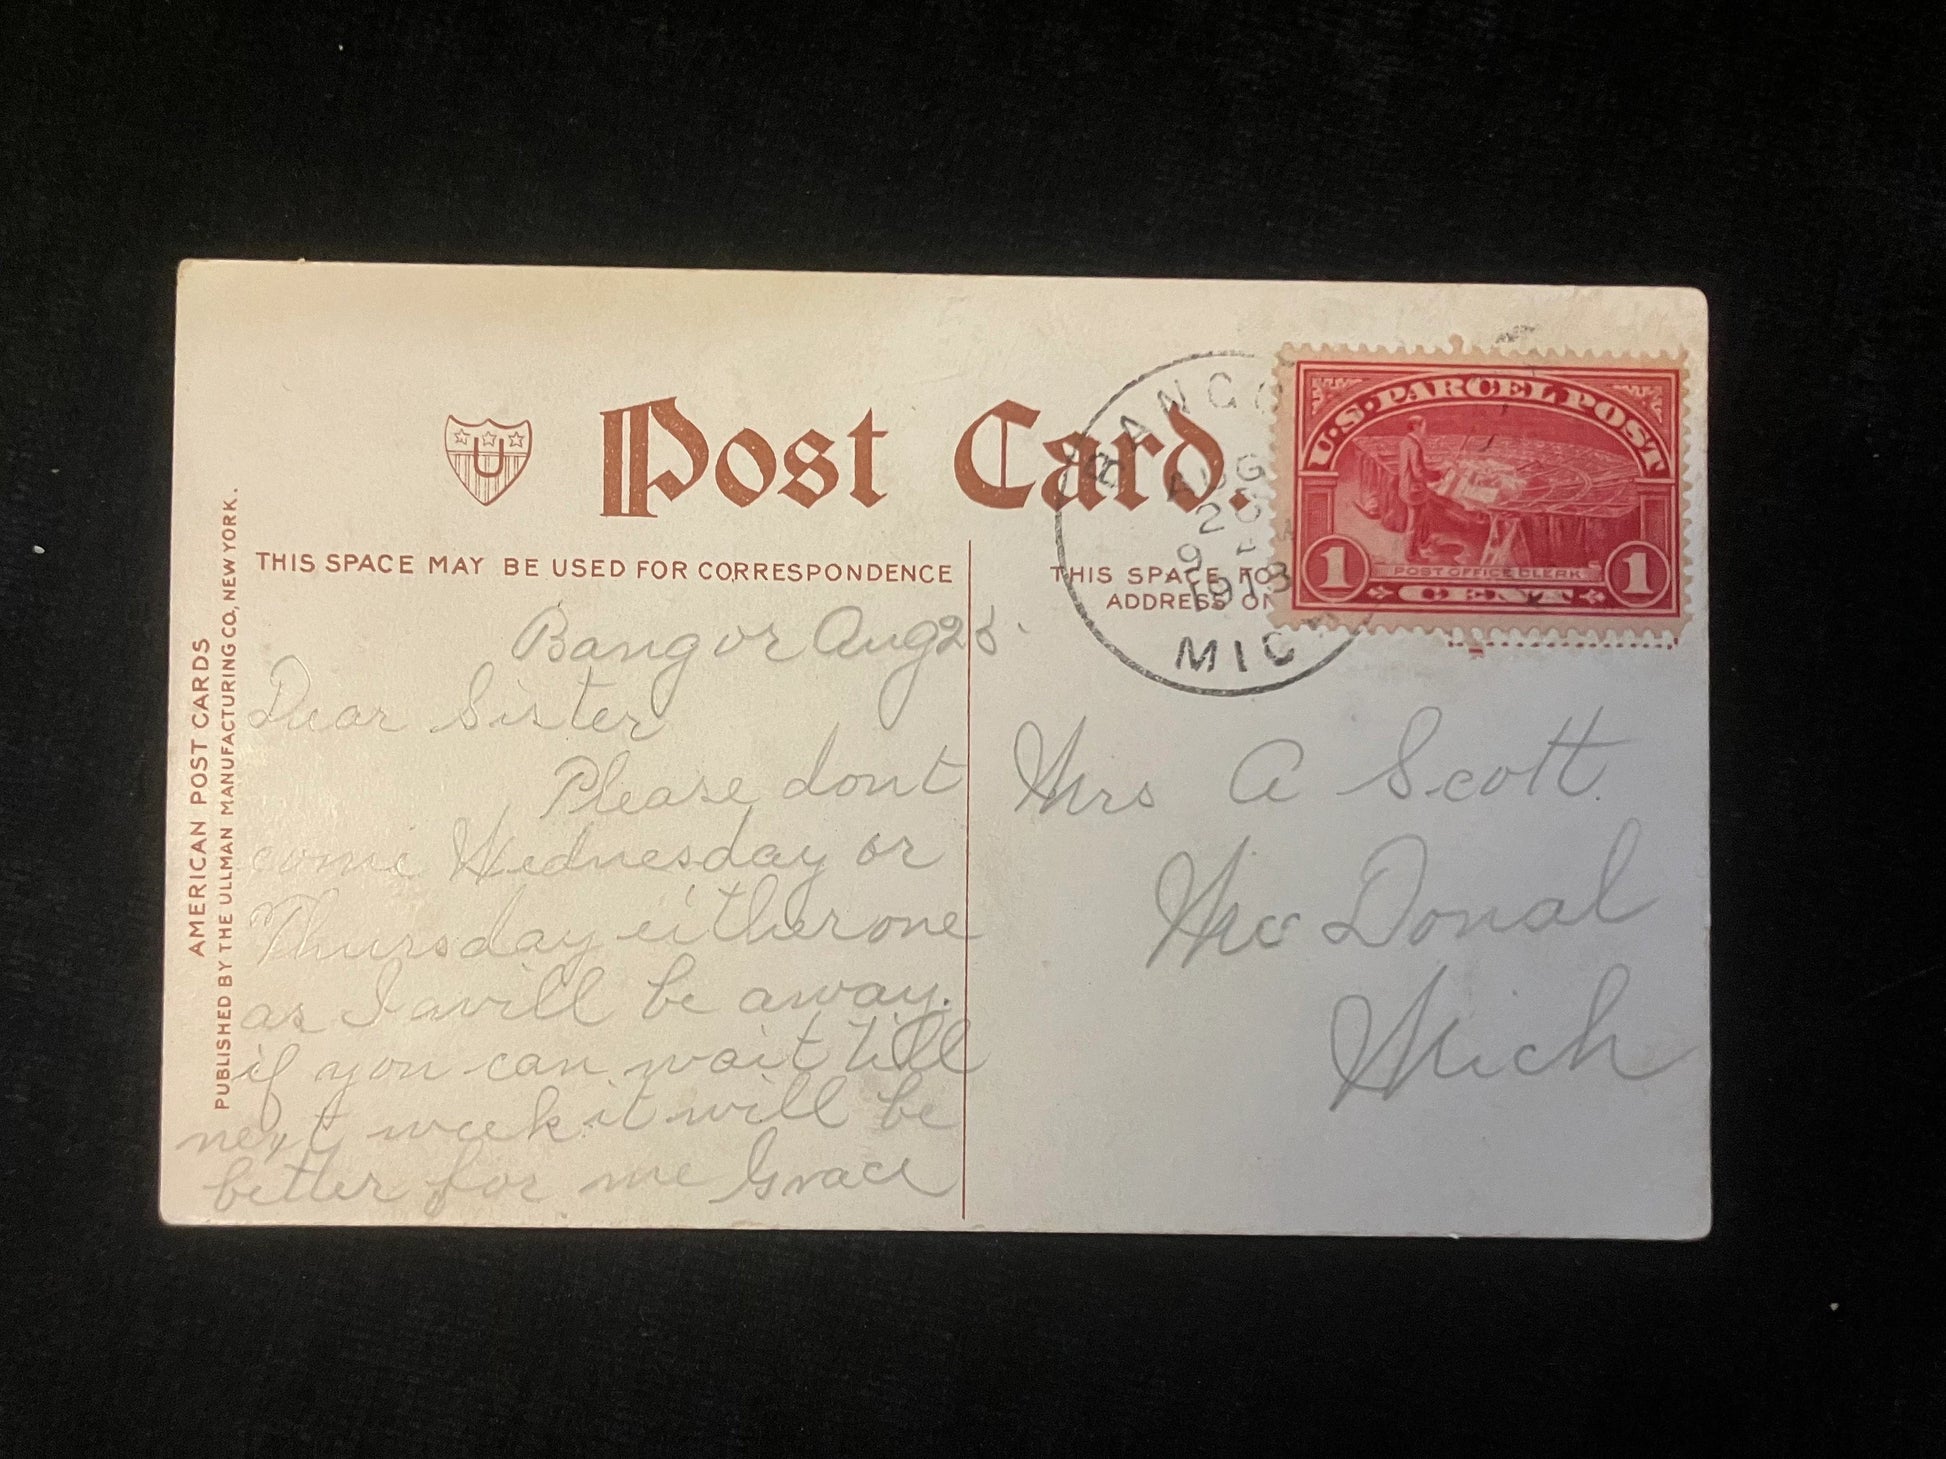 Post Card.
U
THIS SPACE MAY BE USED FOR CORRESPONDENCE
THIS SPACE FO
ADDRESS ON
AMERICAN POST CARDS
PUBLISHED BY THE ULLMAN MANUFACTURING CO., NEW YORK.
BANGO
AUG
9
1913
MIC
U.S. PARCEL POST
1 POST OFFICE CLERK 1
CENT
Bangor Aug 25.
Dear Sister
Please dont
come Wednesday or
Thursday either one
as I will be away.
if you can wait till
next week it will be
better for me Grace
Mrs A Scott.
Mc Donal
Mich